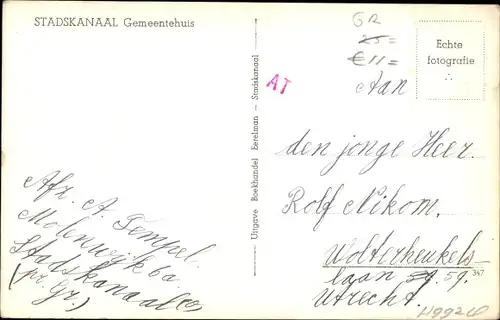 STADSKANAAL Gemeentehuis
GR
25=
€11=
Echte
fotografie
AT
Aan
den jonge Heer.
Rolf Nikom.
Wolterheukels
laan 59.
Utrecht.
347
Uitgave Boekhandel Eerelman - Stadskanaal
Afz. A. Tempel.
Molenwijk 6a
Stadskanaal
(pr. Gr.)